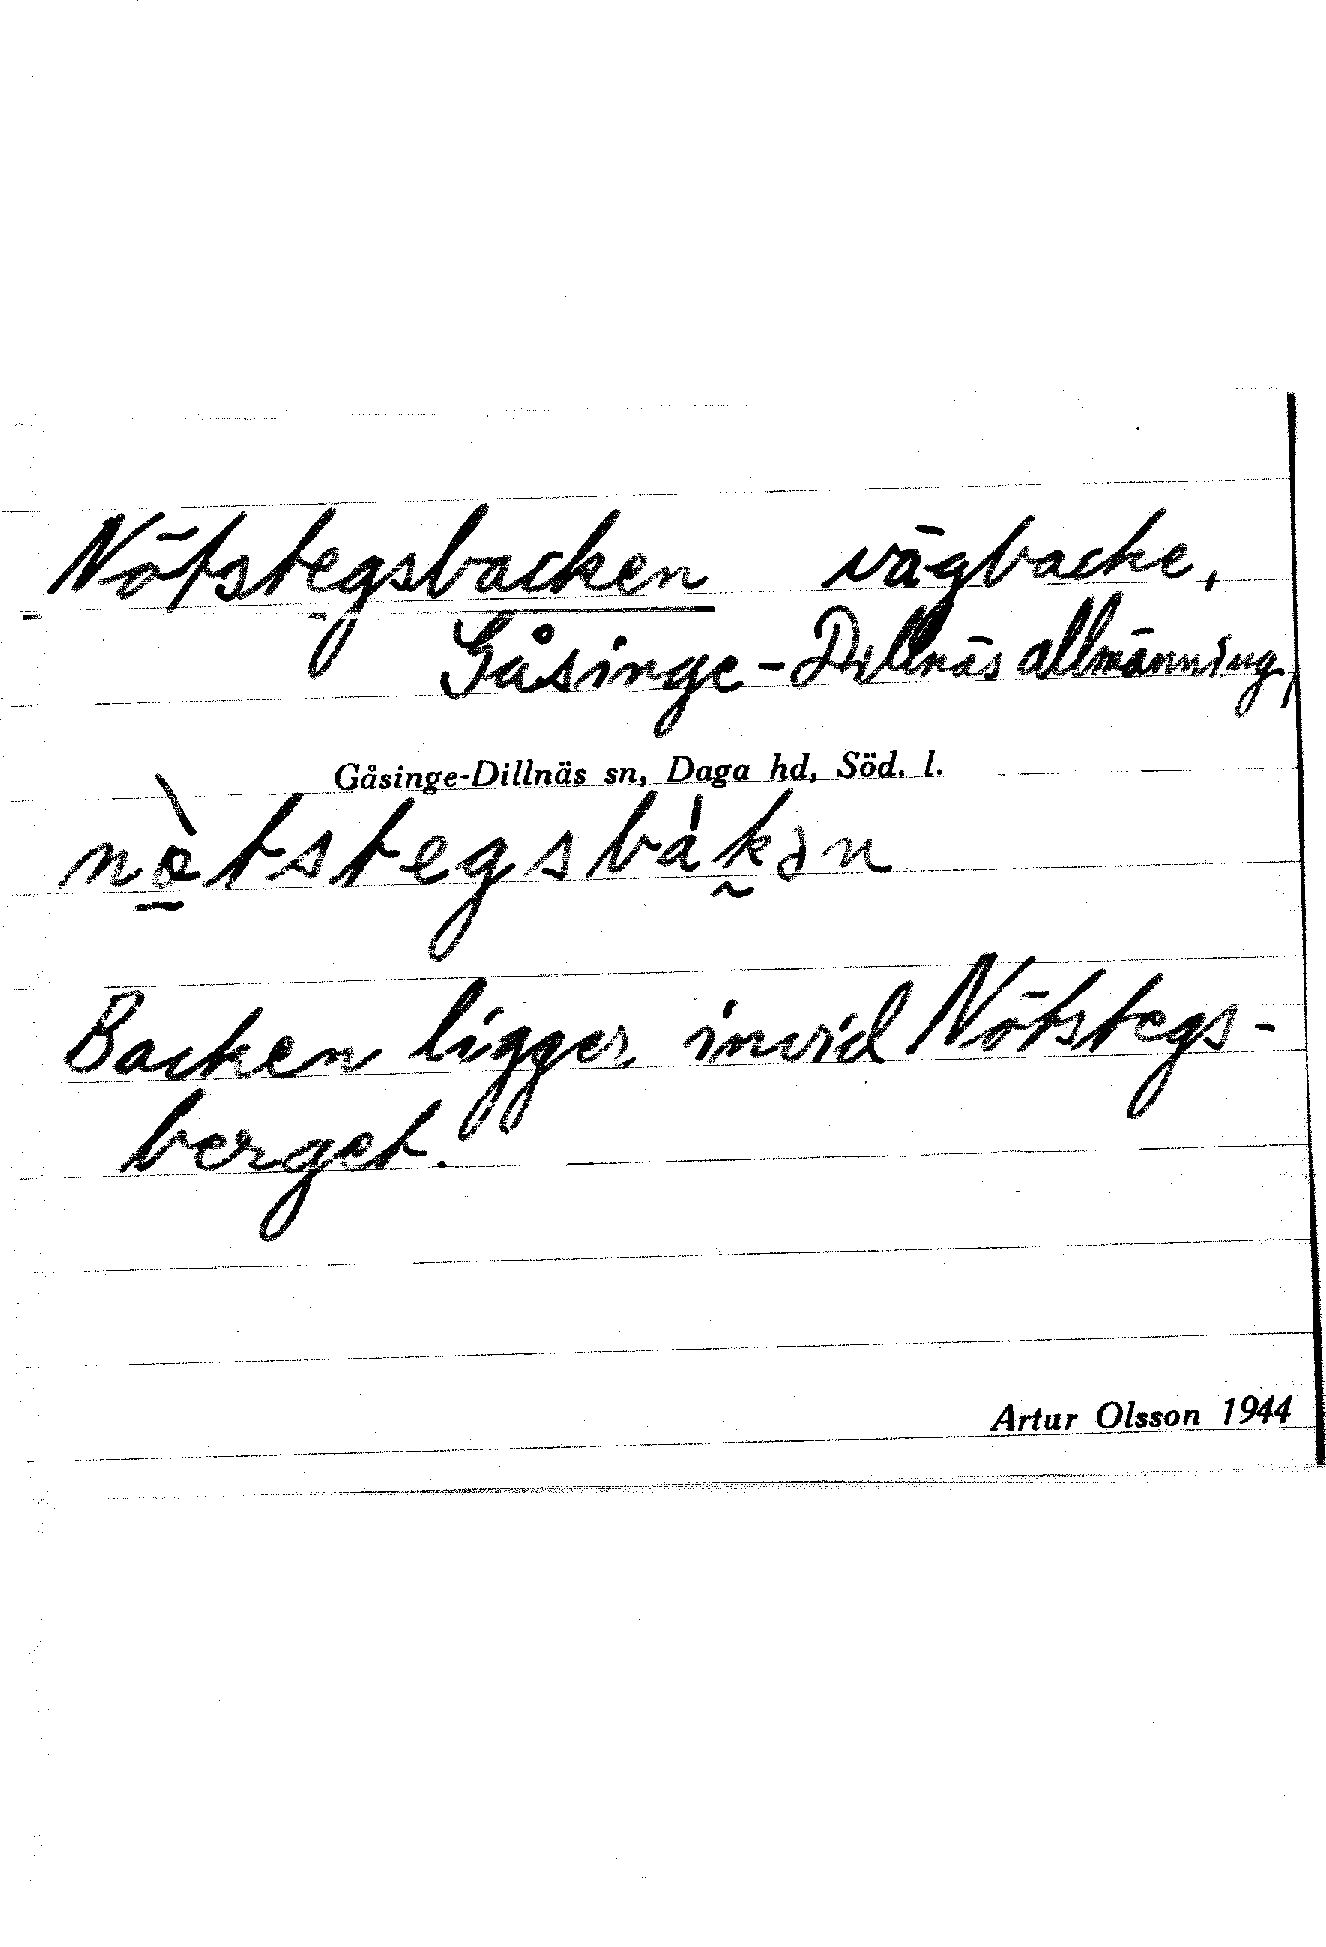 Nötstegsbacken vägbacke,
Gåsinge-Dillnäs allmänning,
Gåsinge-Dillnäs sn, Daga hd, Söd. l.
nø̀tstegsbàk̰ən
Backen ligger invid Nötstegs-
berget.
Artur Olsson 1944